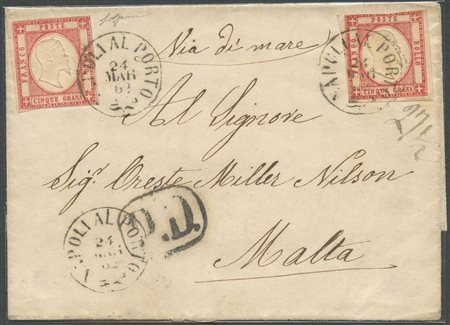 FRANCO POSTE BOLLO CINQUE GRANA
NAPOLI AL PORTO
24
MAR
62
Via di mare
NAPOLI AL PORTO
FRANCO POSTE BOLLO
CINQUE GRANA
Al Signore
Sig.r Oreste Miller Nilson
NAPOLI AL PORTO
24
MAR
62
P.D.
Malta